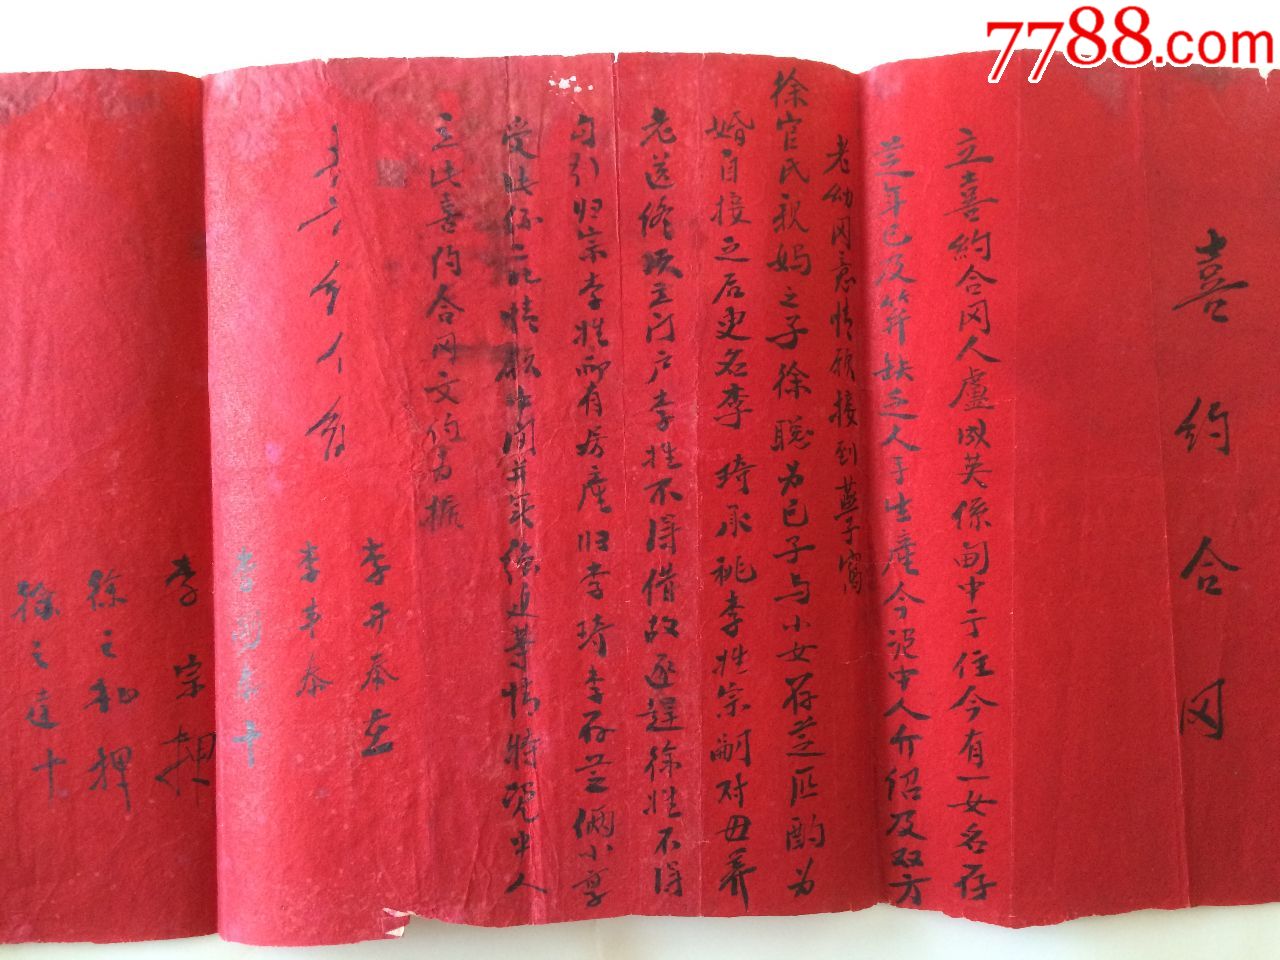 7788.com
喜约合同
立喜約合同人盧成英係甸中于住今有一女名存
芝年已及笄缺乏人手生產今凭中人介绍及双方
老幼同意情願接到燕子窩
徐官氏秋妈之子徐聪为已子与小女存芝匹酌为
婚自接之后更名李琦承祧李姓宗嗣对母养
老送终顶立门户李姓不得借故逐趕徐姓不得
勾引归宗李姓所有房産归李琦李存芝俩小享
受此係二比情願中间并无徐迫等情特凭中人
立此喜约合同文约为据
李开泰
李事泰
李國泰
李宗押
徐之和押
徐之達十